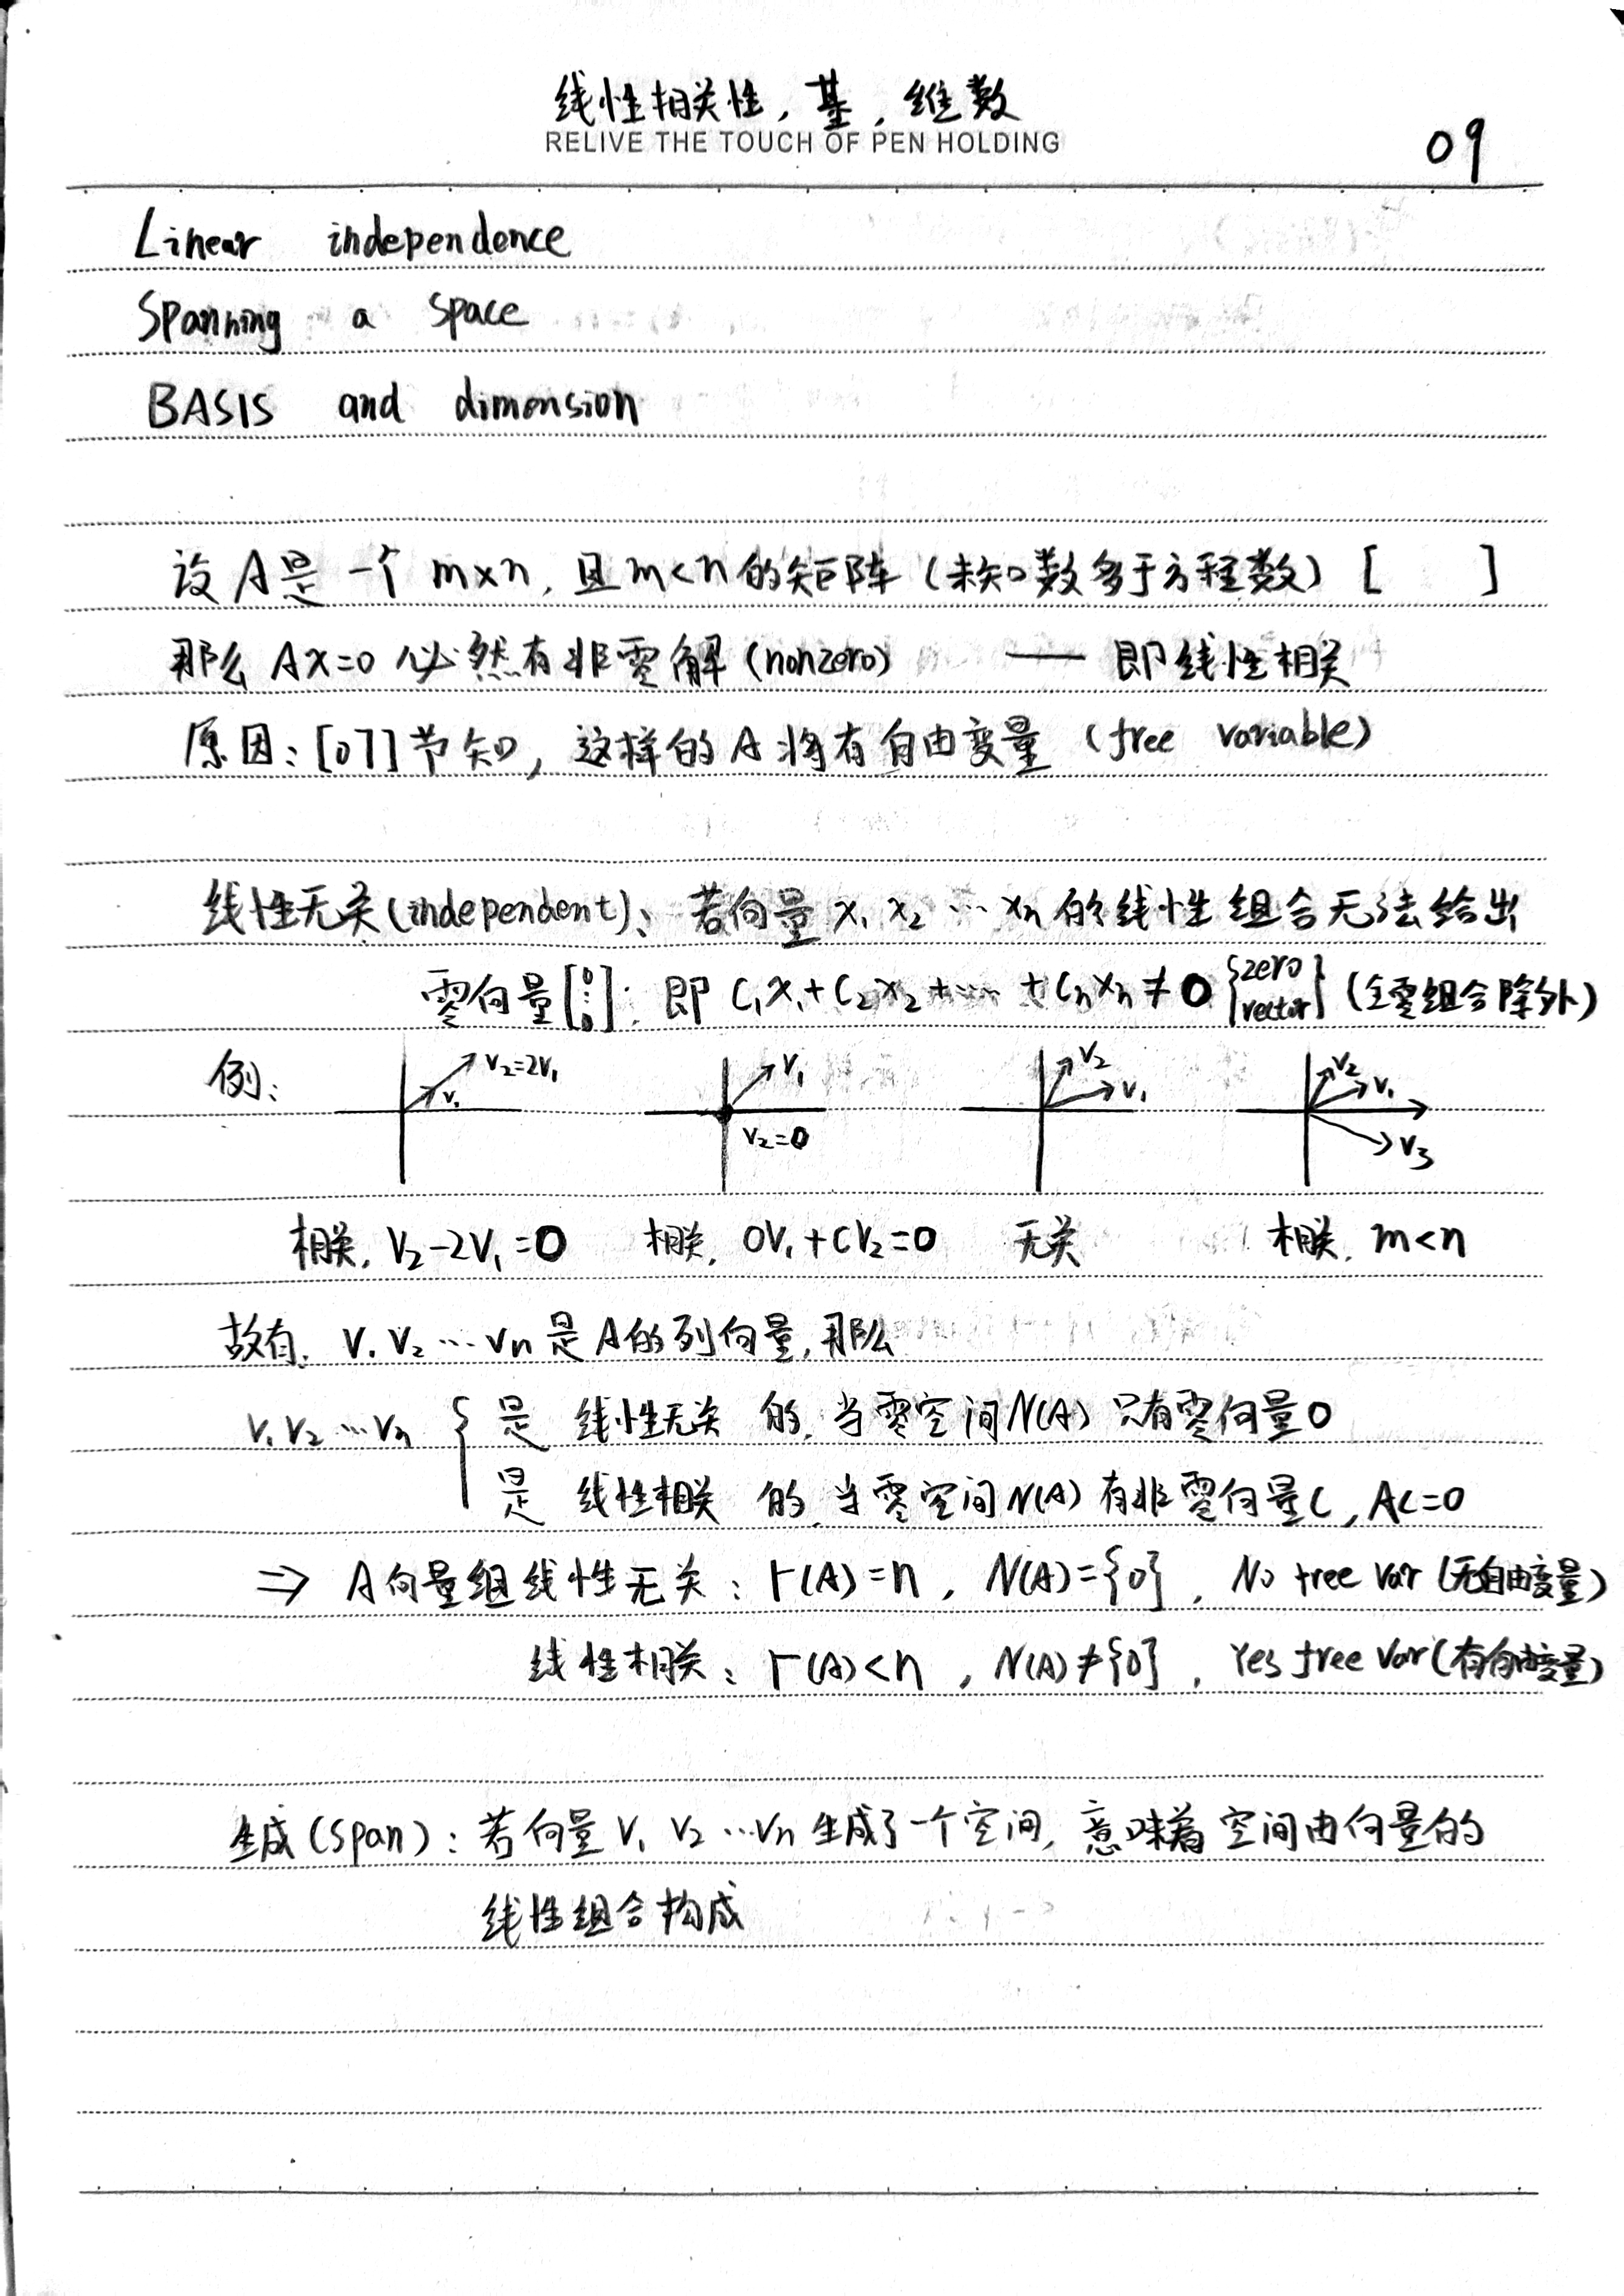 线性相关性, 基, 维数
RELIVE THE TOUCH OF PEN HOLDING
09
Linear independence
Spanning a space
BASIS and dimension
设 A是 一个 m×n, 且 m<n 的矩阵 (未知数多于方程数) [ ]
那么 Ax=0 必然有非零解 (nonzero) —— 即线性相关
原因: [07] 节知, 这样的 A 将有自由变量 (free variable)
线性无关(independent)、若向量 x₁ x₂ … xₙ 的线性组合无法给出
零向量[0⋮0]: 即 C₁x₁+C₂x₂+…+Cₙxₙ≠0 {zero vector} (全零组合除外)
例:
V₂=2V₁
V₁
V₁
V₂=0
V₂
V₁
V₂
V₁
V₃
相关, V₂-2V₁=0 相关, 0V₁+CV₂=0 无关 相关, m<n
故有, V₁ V₂ … Vₙ 是 A的列向量, 那么
V₁ V₂ … Vₙ { 是 线性无关 的, 当零空间N(A) 只有零向量0
是 线性相关 的, 当零空间N(A) 有非零向量C, AC=0
⇒ A向量组线性无关: r(A)=n, N(A)={0}, No free var (无自由变量)
线性相关: r(A)<n, N(A)≠{0}, Yes free var (有自由变量)
生成(span): 若向量 V₁ V₂ … Vₙ 生成了一个空间, 意味着空间由向量的
线性组合构成